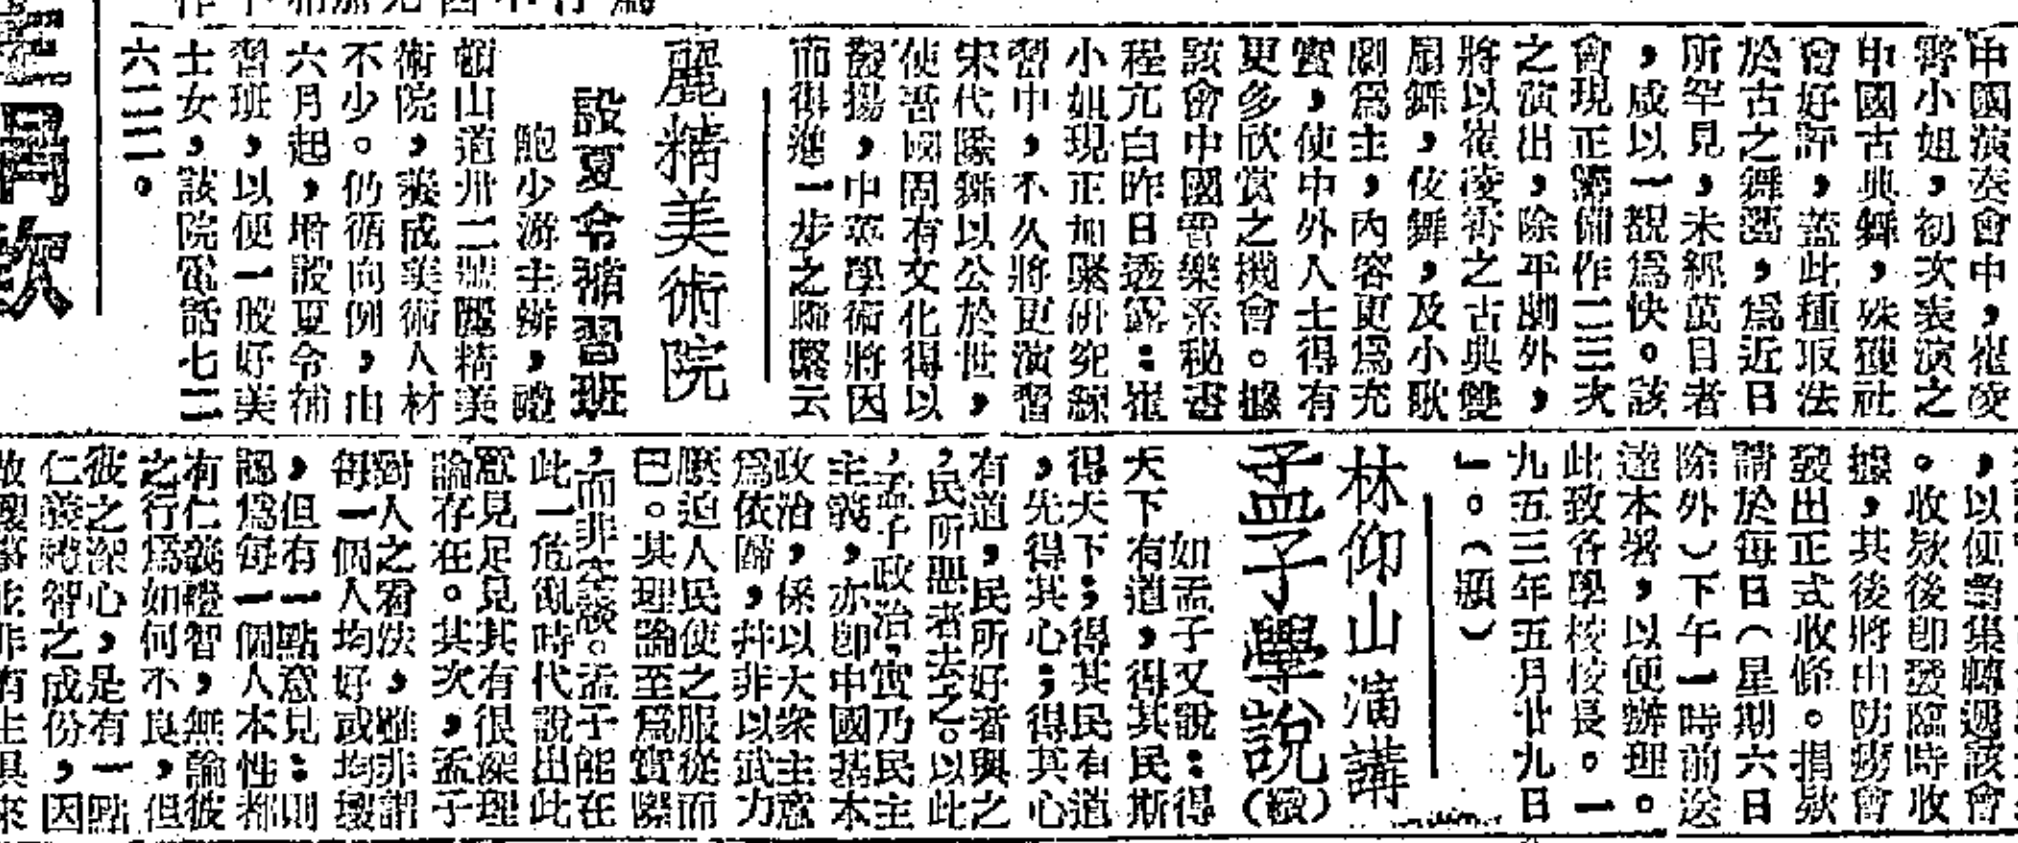 中國演奏會中，崔凌
霄小姐，初次表演之
中國古典舞，殊獲社
會好評，蓋此種取法
於古之舞蹈，為近日
所罕見，未經萬目者
，咸以一覩爲快。該
會現正籌備作二三次
之演出，除平劇外，
將以崔凌霄之古典雙
扇舞，伎舞，及小歌
劇爲主，內容更爲充
實，使中外人士得有
更多欣賞之機會。據
該會中國習樂系秘書
程亢白昨日透露：崔
小姐現正加緊研究練
習中，不久將更演習
宋代隊舞以公於世，
使吾國固有文化得以
發揚，中英學術將因
而得進一步之聯繫云
麗精美術院
設夏令補習班
鮑少游主辦，禮
頓山道卅二號麗精美
術院，養成美術人材
不少。仍循向例，由
六月起，增設夏令補
習班，以便一般好美
士女，該院電話七二
六二二。
，以便彙集轉遞該會
。收欵後卽發臨時收
據，其後將由防癆會
發出正式收條。捐欵
請於每日（星期六日
除外）下午一時前送
達本署，以便辦理。
此致各學校校長。一
九五三年五月廿九日
」。（顯）
林仰山演講
孟子學說（續）
如孟子又說：得
天下有道，得其民斯
得天下；得其民有道
，先得其心；得其心
有道，民所好者與之
，民所惡者去之。以此
，孟子政治，實乃民主
主義，亦卽中國基本
政治，係以大衆主意
爲依歸，幷非以武力
壓迫人民使之服從而
已。其理論至爲實際
，而非空談。孟子能在
此一危亂時代說出此
意見足見其有很深理
論存在。其次，孟子
對人之看法，雖非謂
每一個人均好或均壞
，但有一點意見：則
認爲每一個人本性都
有仁義禮智，無論彼
之行爲如何不良，但
彼之深心，是有一點
仁義禮智之成份，因